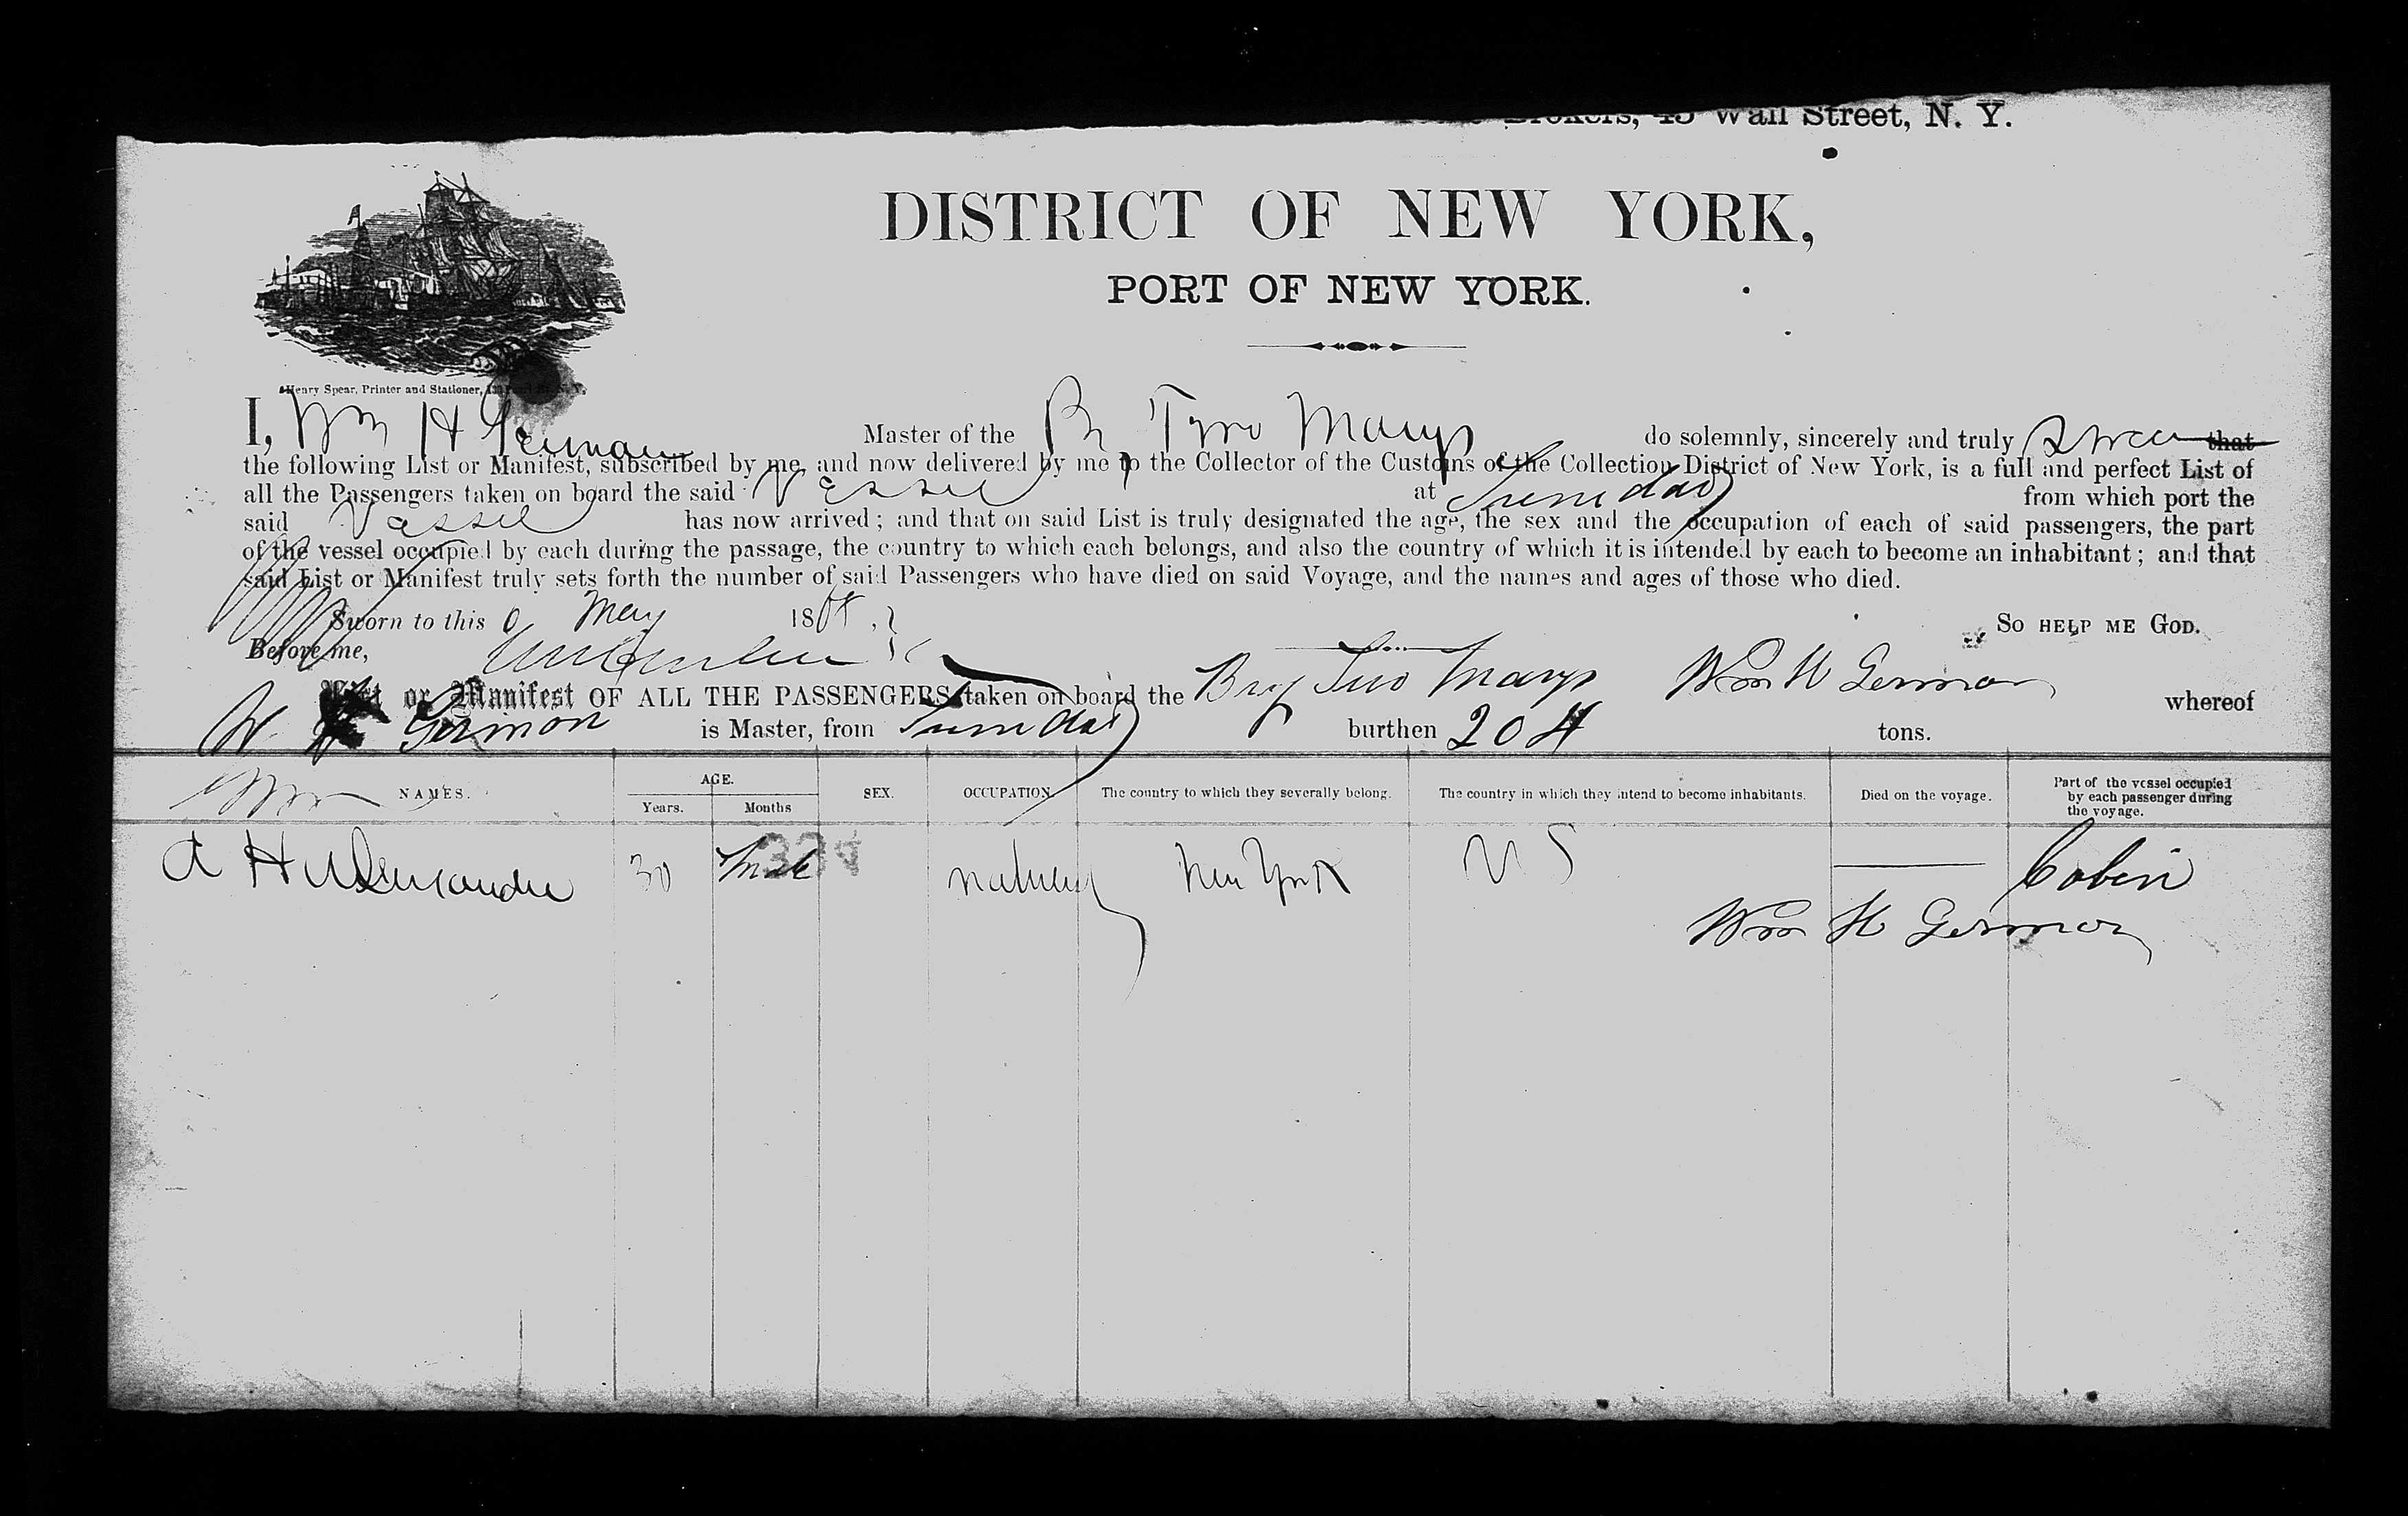 Brokers, 45 Wall Street, N. Y.
DISTRICT OF NEW YORK,
PORT OF NEW YORK.
Henry Spear, Printer and Stationer,
I, Wm H German Master of the Br Two Marys do solemnly, sincerely and truly swear that
the following List or Manifest, subscribed by me, and now delivered by me to the Collector of the Customs of the Collection District of New York, is a full and perfect List of
all the Passengers taken on board the said Vessel at Trinidad from which port the
said Vessel has now arrived; and that on said List is truly designated the age, the sex and the occupation of each of said passengers, the part
of the vessel occupied by each during the passage, the country to which each belongs, and also the country of which it is intended by each to become an inhabitant; and that
said List or Manifest truly sets forth the number of said Passengers who have died on said Voyage, and the names and ages of those who died.
Sworn to this May 18 So HELP ME GOD.
Before me,
List or Manifest OF ALL THE PASSENGERS taken on board the Brig Two Marys Wm H German whereof
W. German is Master, from Trinidad burthen 204 tons.
Wm
NAMES. AGE. Years. Months SEX. OCCUPATION. The country to which they severally belong. The country in which they intend to become inhabitants. Died on the voyage. Part of the vessel occupied by each passenger during the voyage.
A H 30 Male New York U S Cabin
Wm H German